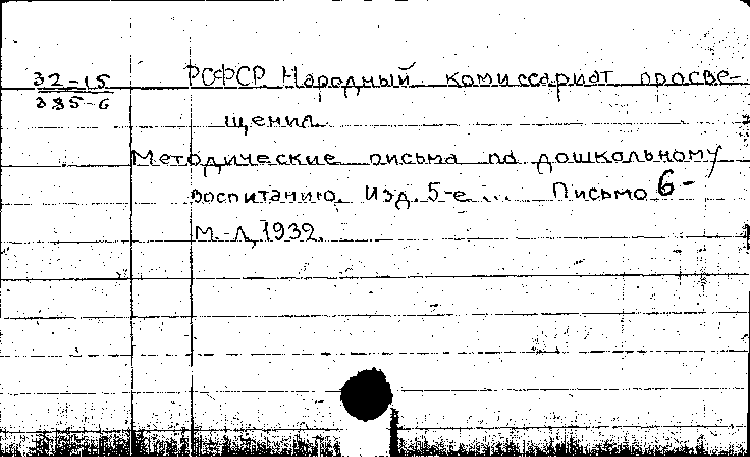 32-15
385-6
РСФСР. Народный комиссариат просве-
щения.
Методические письма по дошкольному
воспитанию. Изд. 5-е ... Письмо 6-
М.-Л, 1932.